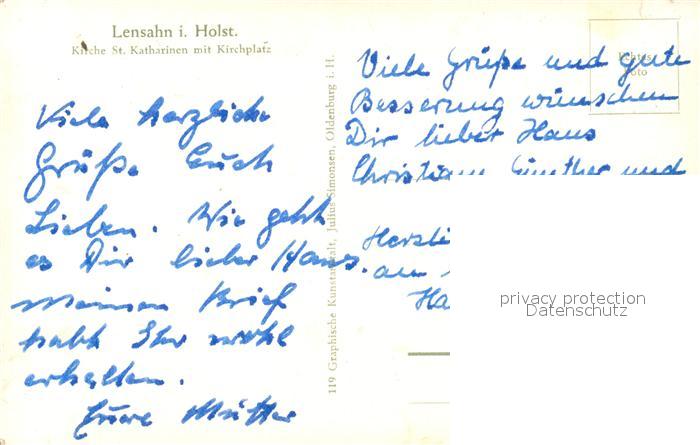 Lensahn i. Holst.
Kirche St. Katharinen mit Kirchplatz
Viele herzliche
Grüße Euch
Lieben. Wie geht
es Dir lieber Hans.
Meinen Brief
habt Ihr wohl
erhalten.
Eure Mutter
119 Graphische Kunstanstalt, Julius Simonsen, Oldenburg i. H.
Echtes
Foto
Viele Grüße und gute
Besserung wünschen
Dir lieber Hans
Christian Günther und
Herzli
an
Ha
privacy protection
Datenschutz